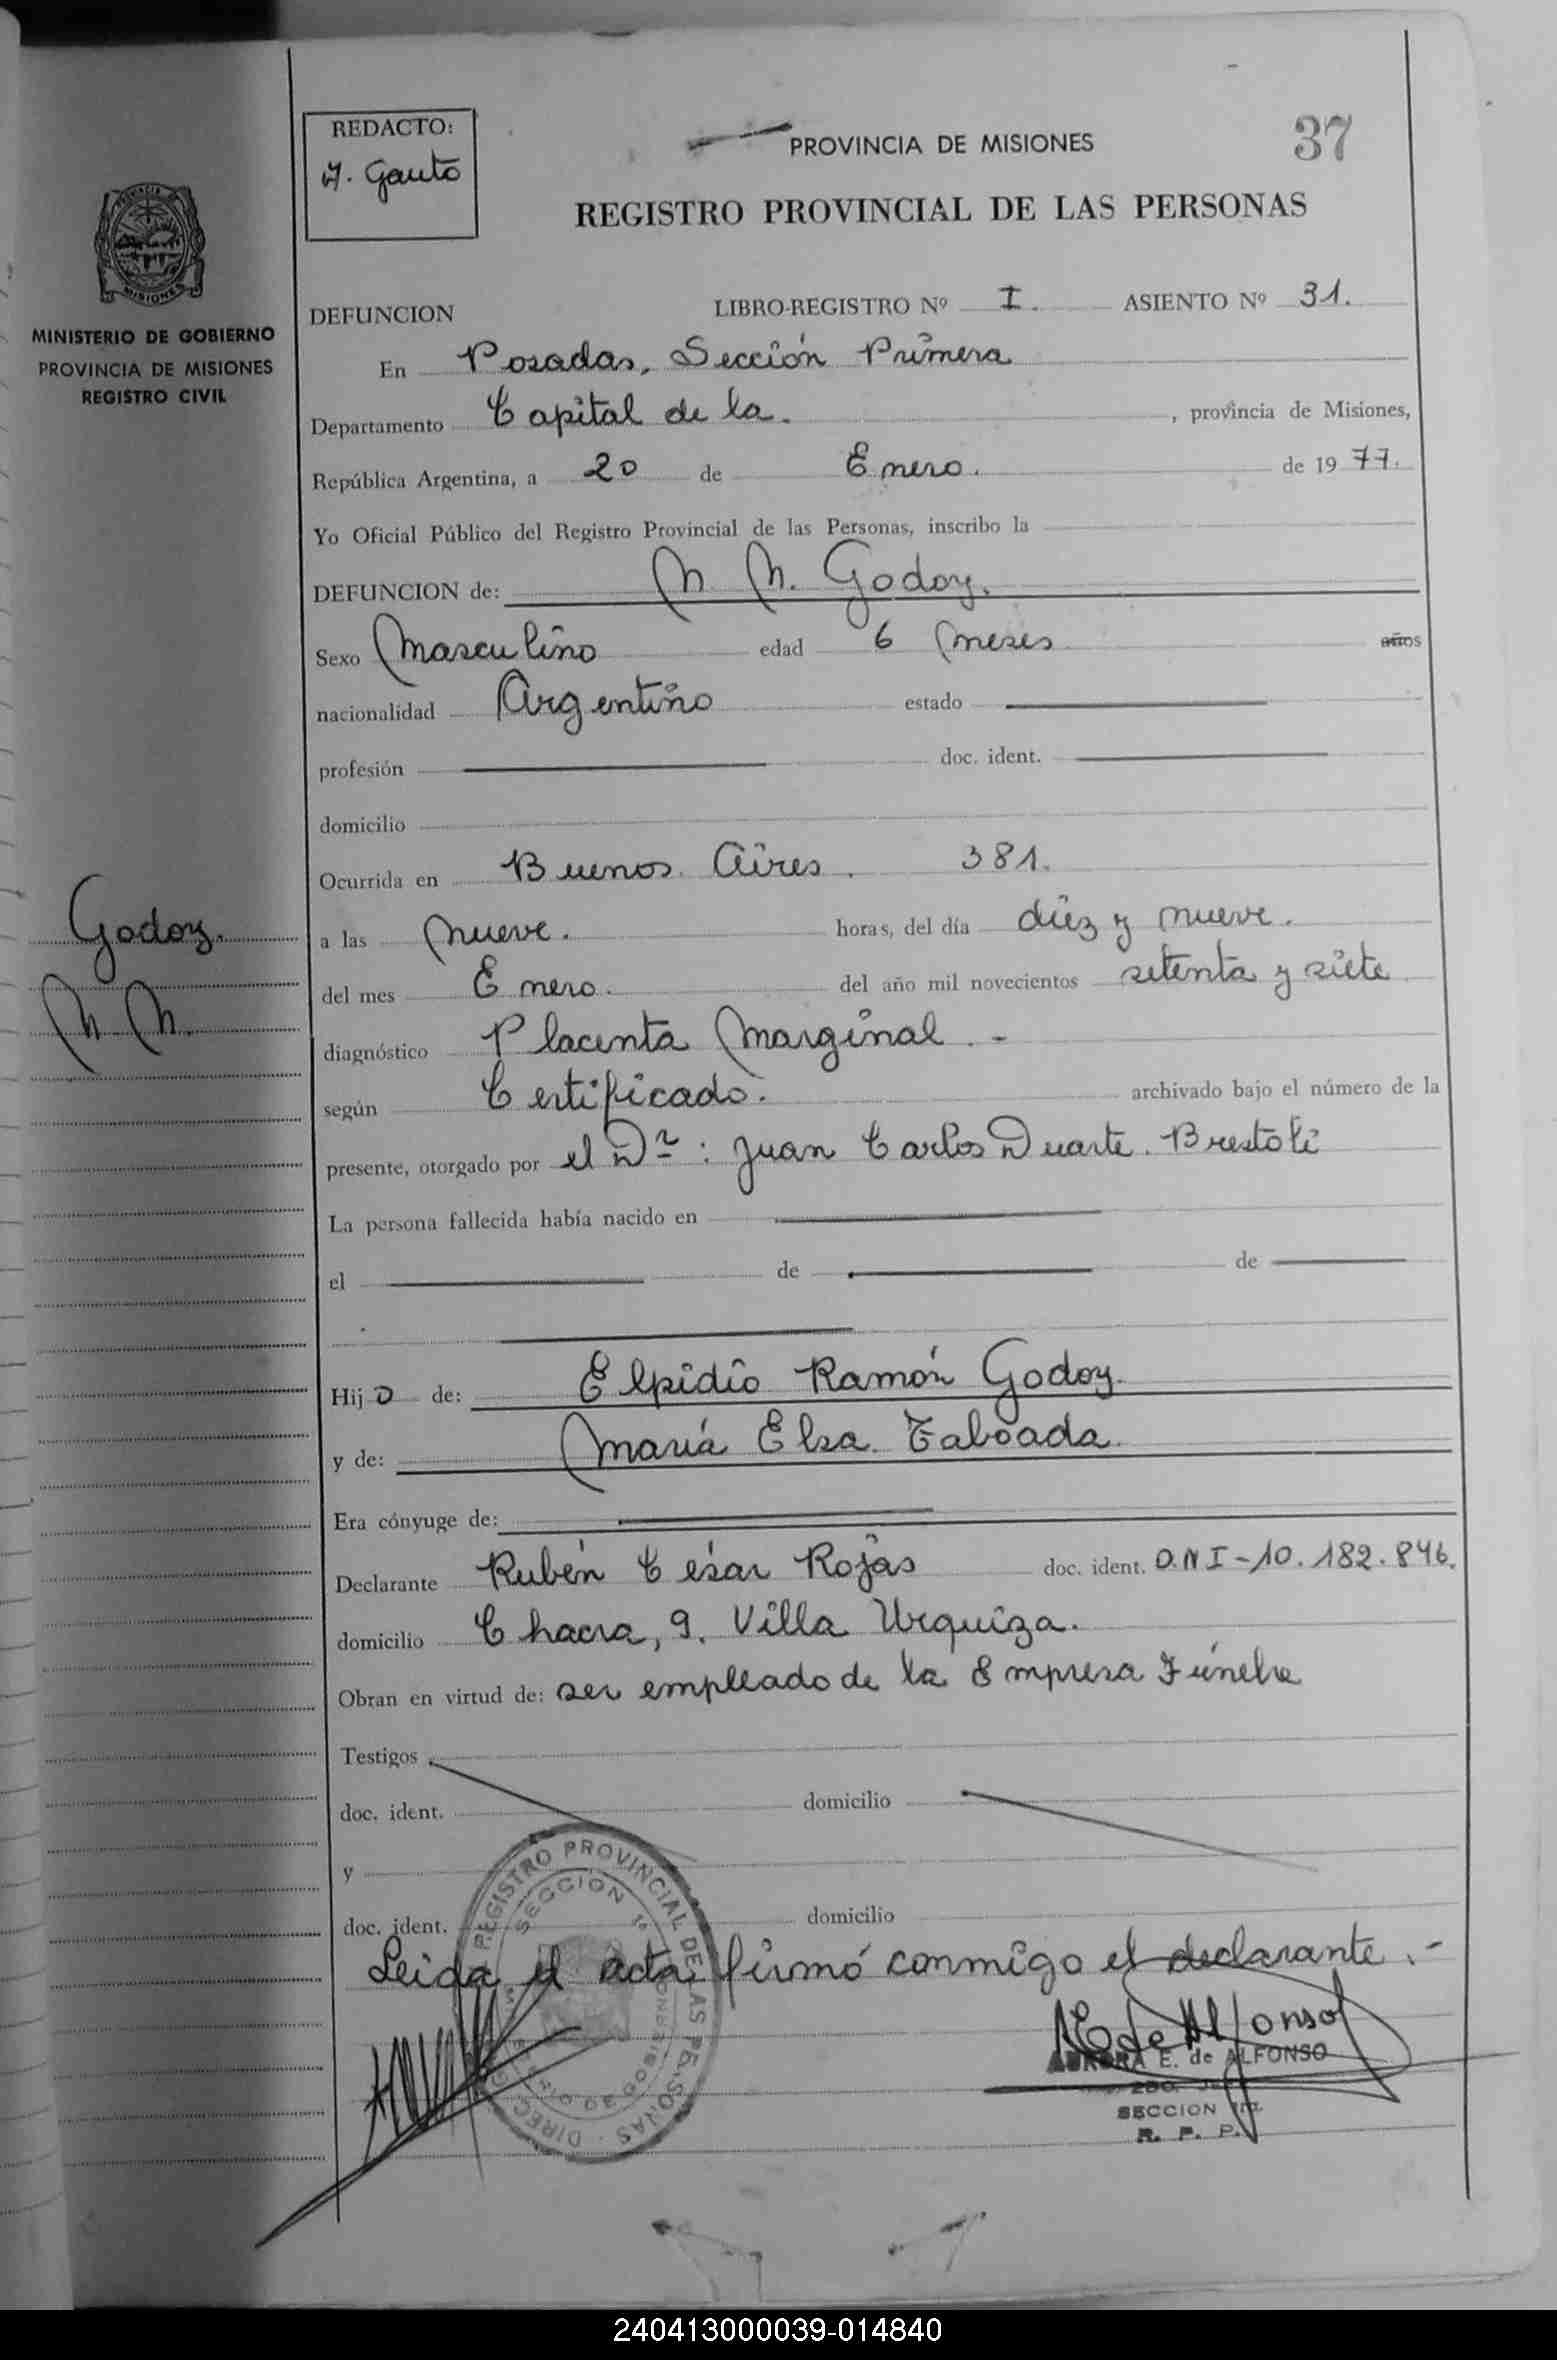 REDACTO:
J. Gauto
PROVINCIA DE MISIONES
37
REGISTRO PROVINCIAL DE LAS PERSONAS
PROVINCIA
MISIONES
MINISTERIO DE GOBIERNO
PROVINCIA DE MISIONES
REGISTRO CIVIL
DEFUNCION LIBRO-REGISTRO Nº I. ASIENTO Nº 31.
En Posadas, Sección Primera
Departamento Capital de la. , provincia de Misiones,
República Argentina, a 20 de Enero. de 19 77.
Yo Oficial Público del Registro Provincial de las Personas, inscribo la
DEFUNCION de: N. N. Godoy.
Sexo Masculino edad 6 meses años
nacionalidad Argentino estado
profesión doc. ident.
domicilio
Ocurrida en Buenos Aires. 381.
Godoy.
N. N.
a las nueve. horas, del día diez y nueve.
del mes Enero. del año mil novecientos setenta y siete
diagnóstico Placenta Marginal. -
según Certificado. archivado bajo el número de la
presente, otorgado por el Dr: Juan Carlos Duarte. Brestoli
La persona fallecida había nacido en
el de de
Hij o de: Elpidio Ramón Godoy.
y de: María Elsa Taboada.
Era cónyuge de:
Declarante Rubén César Rojas doc. ident. D.N I-10.182.846.
domicilio Chacra, 9. Villa Urquiza.
Obran en virtud de: ser empleado de la Empresa Fúnebre
Testigos
doc. ident. domicilio
y
doc. ident. domicilio
REGISTRO PROVINCIAL DE LAS PERSONAS
SECCION 1º
Leida el acta firmó conmigo el declarante. -
E de Alfonso
AURORA E. de ALFONSO
2DO. JEFE
SECCION 1ra.
R. P. P.
240413000039-014840